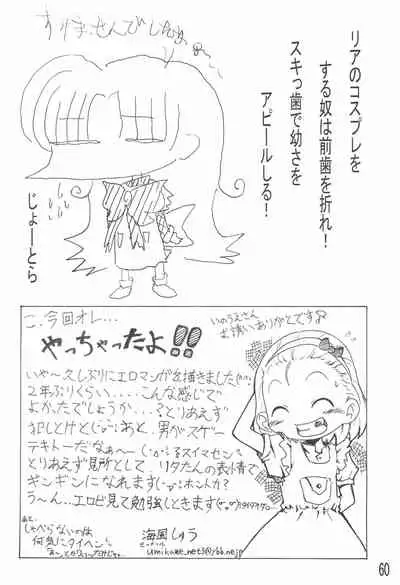 リアのコスプレを
する奴は前歯を折れ!
スキっ歯で幼さを
アピールしる!
じょーとら
こ、今回オレ…
やっちゃったよ!!
いのうえさん
お誘いありがとです
いや〜久しぶりにエロマンガを描きました
2年ぶりくらい……こんな感じで
よかったでしょうか…?とりあえず
犯しとけと あと、男がスゲー
テキトーだなぁ〜 スイマセン
とりあえず見所として リタたんの表情で
ギンギンになれます ホントカ?
う〜ん…エロビ見て勉強しときます
あと、
しゃべらないのは
何気にタイヘン
海国しゅう
60